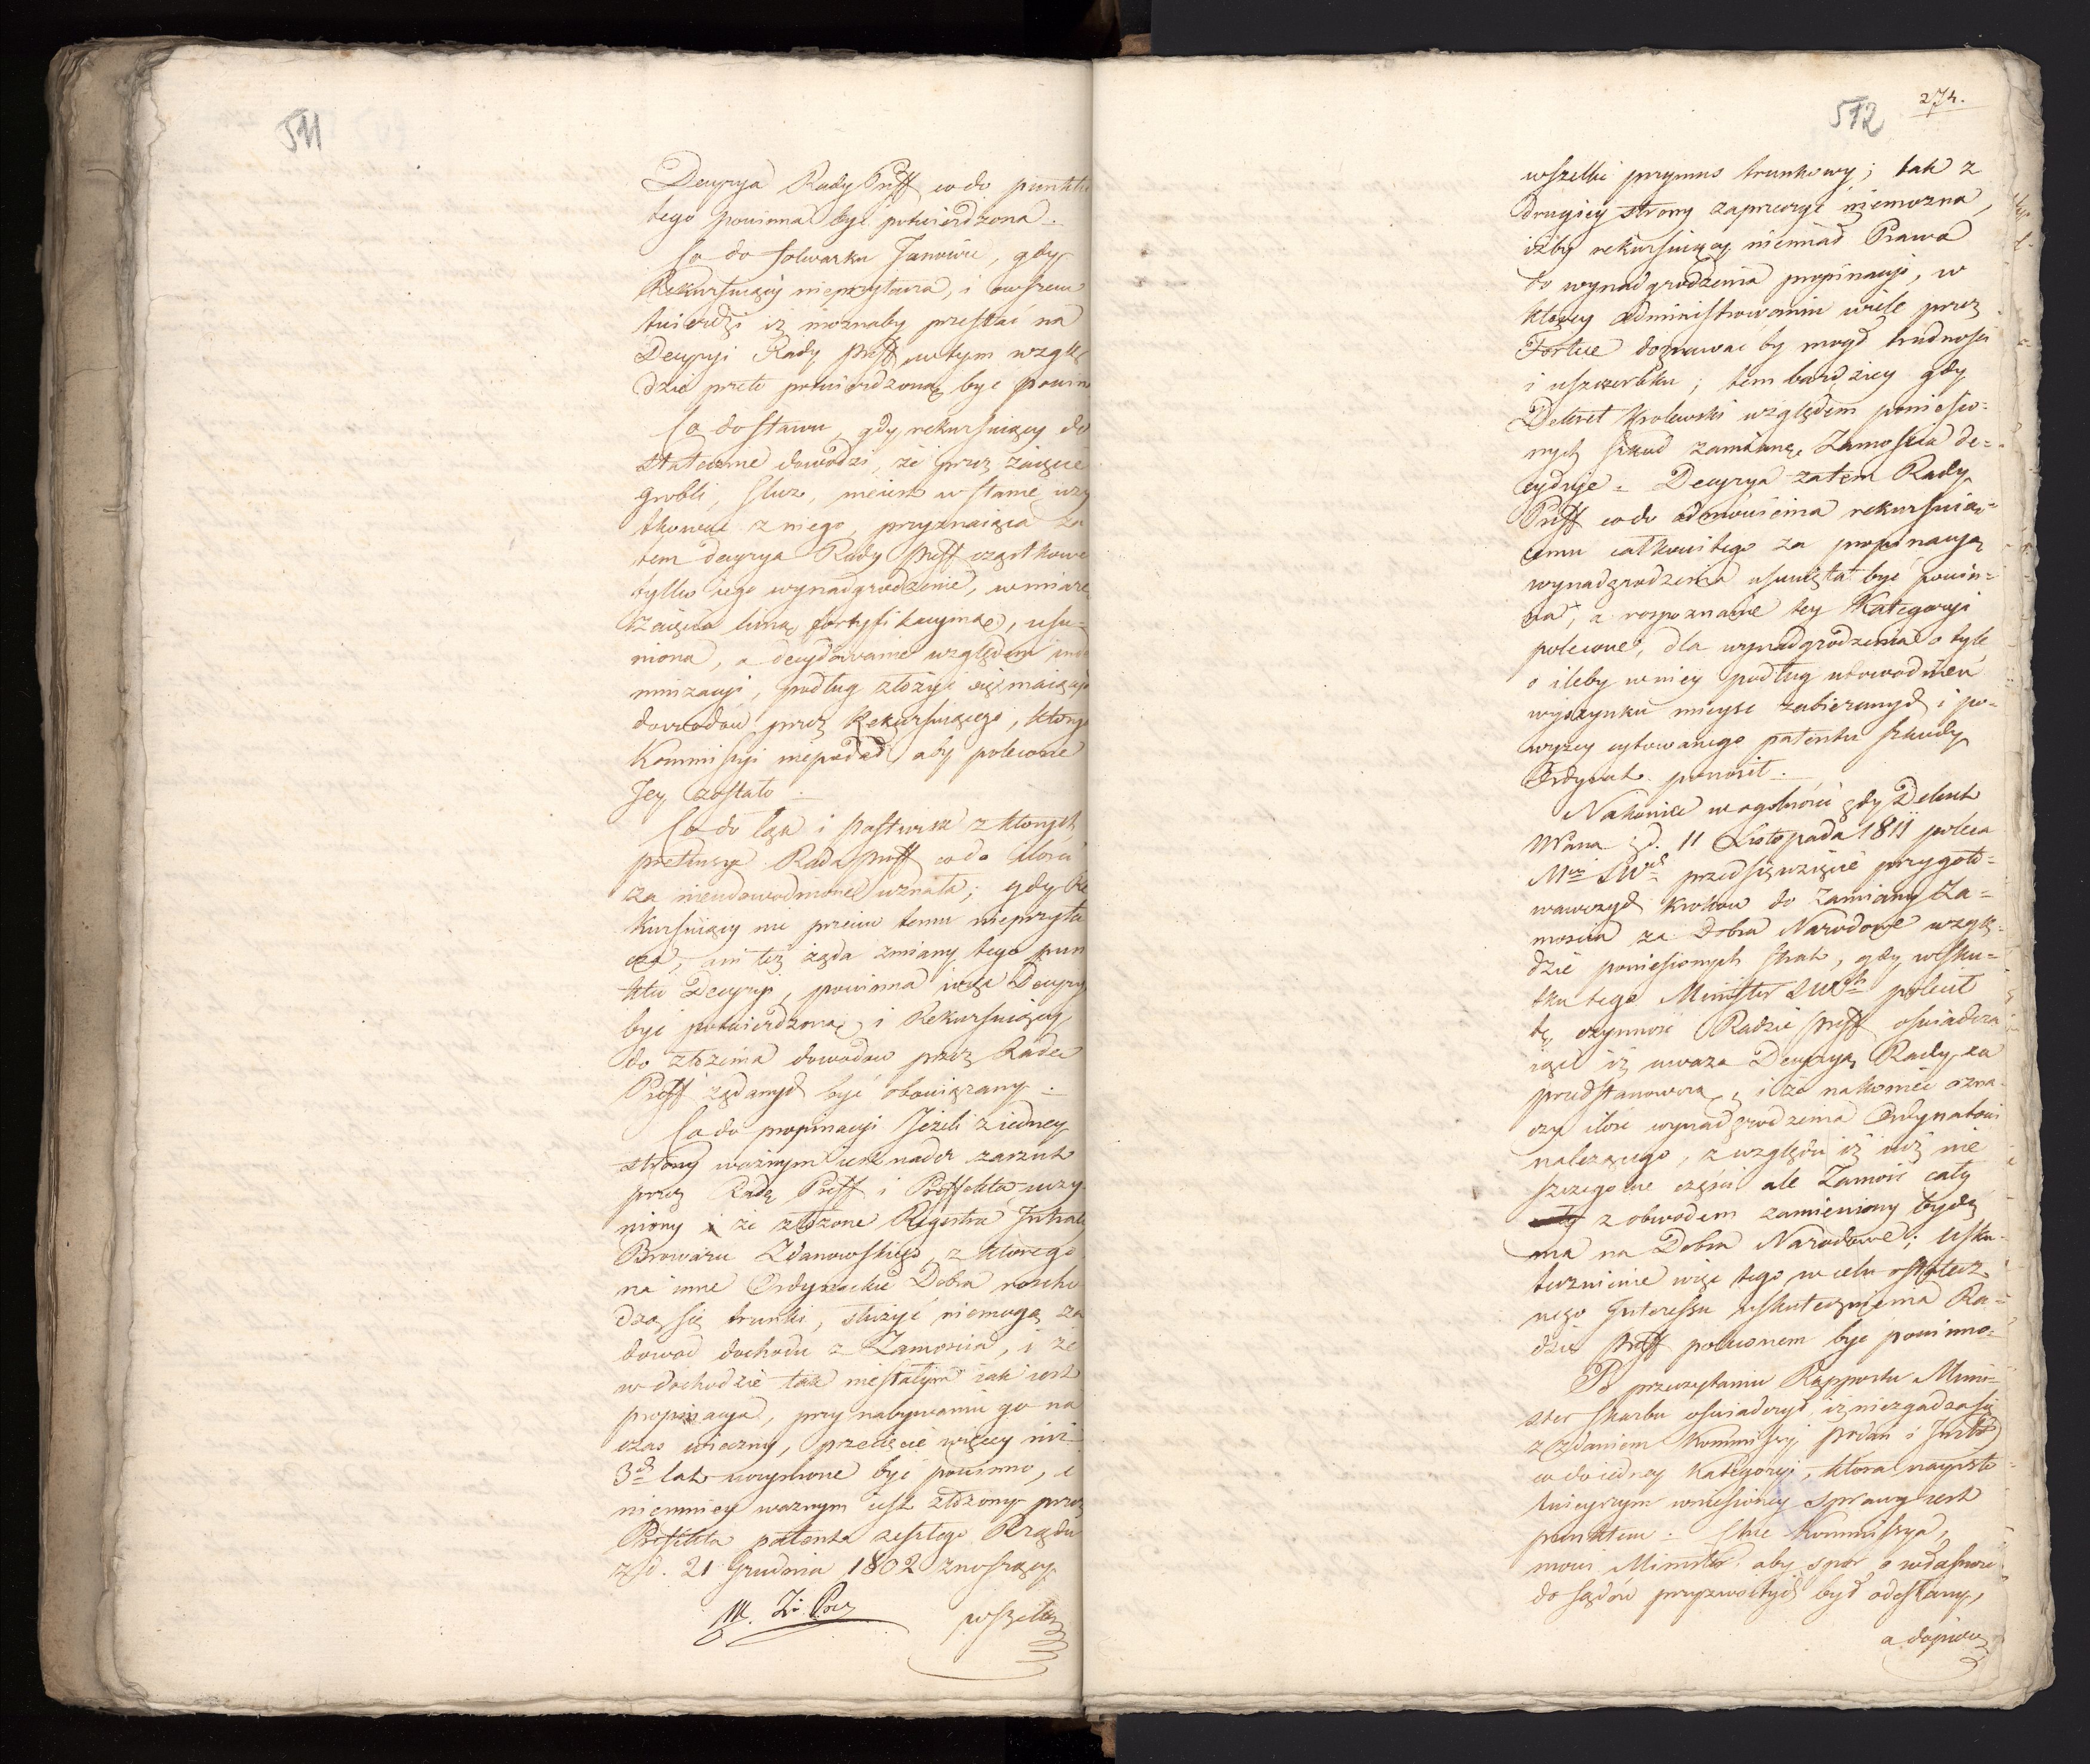 511
Decyzya Rady Preff co do punktu
tego powinna być potwierdzona.
Co do folwarku Janowic, gdy
Rekursuiący nieprzytacza, i owszem
twierdzi iż możnaby przestać na
Decyzyi Rady Preff w tym wzglę
dzie przeto potwierdzoną być powin
Co do stawu, gdy rekursuiący do
statecznie dowodzi, że przez zaięcie
grobli, sluz, nieiest w stanie uży
tkować z niego, przyznaiąca za
tem decyzya Rady Preff cząstkowe
tylko iego wynadgrodzenie, w miarę
zaięcia linią fortyfikacyiną, usu=
niona, a decydowanie względem inde
mnizacyi, podług złożyć się maiących
dowodów przez Rekursuiącego, których
Kommissyi niepodał, aby polecone
Jey zostało.
Co do łąk i pastwisk z których
pretensye Rada Preff co do ilości
za nieudowodnione uznała; gdy Re
kursuiący nic przeciw temu nieprzyta
cza, ani też żąda zmiany tego pun
ktu Decyzyi, powinna więc Decyzya
być potwierdzoną, i Rekursuiący
do złożenia dowodów przez Radę
Preff żądanych być obowiązany.
Co do propinacyi Jeżeli z iedney
strony ważnym iest nader zarzut
przez Radę Preff i Preffekta uczy
niony że złożone Regestra Intraty
Browaru Zdanowskiego, z którego
na inne Ordynackie Dobra rozcho
dzą się trunki, służyć niemogą za
dowód dochodu z Zamościa, i że
w dochodzie tak niestałym iak iest
propinacya, przy nabywaniu go na
czas wieczny, przecięcie więcey niż
3ch lat uczynione być powinno, i
niemniey ważnym iest złożony przez
Prefekta patent zeszłego Rządu
z d. 21 Grudnia 1802 znoszący
wszelki
274.
512
wszelki przymus trunkowy; tak z
drugiey strony zaprzeczyć niemożna,
iżby rekursuiący niemiał Prawa
do wynadgrodzenia propinacyi, w
którey administrowaniu wiele przez
Fortece doznawać by mógł trudności
i uszczerbku; tem bardziey gdy
Dekret Królewski względem poniesio=
nych szkód zamianę Zamościa de=
cyduje. Decyzya zatem Rady
Preff co do odmówienia rekursuiac=
cemu całkowitego za propinacyą
wynadgrodzenia usunięta być powin=
na, a rozpoznanie tey Kategoryi
polecone, dla wynadgrodzenia o tyle
o ileby w niey podług udowodnień
wyszynku mieysc zabieranych i po=
wyżey cytowanego patentu szkody
Ordynat ponosił.
Nakoniec w ogólności gdy Dekret
NPana z d. 11 Listopada 1811 poleca
przedsięwzięcie przygoto=
wawczych kroków do zamiany Za=
mościa za Dobra Narodowe wzglę=
dzie poniesionych strat, gdy w sku=
tku tego Minister polecił
tę czynność Radzie Preff oświadcza
iąc iż uważa Decyzyą Rady za
przedstanowczą, i że nakoniec ozna
czy ilość wynadgrodzenia Ordynatowi
należącego, z względu iż nie
szczególne części ale Zamość cały
z obwodem zamieniony bydź
ma na Dobra Narodowe; usku=
tecznienie więc tego w celu ostatecz
nego Interessu uskutecznienia Ra=
dzie Preff poleconem być powinno.
Po przeczytaniu Rapportu Mini=
ster Skarbu oświadczył, iż niezgadza się
z zdaniem Kommissyi Podań i Instr
co do iedney kategoryi, która nayisto
tnieyszym wniesioney sprawy iest
punktem. Chce Kommissya,
mówi Minister aby spór o własność
do sądów przyzwoitych był odesłany,
a dopiero